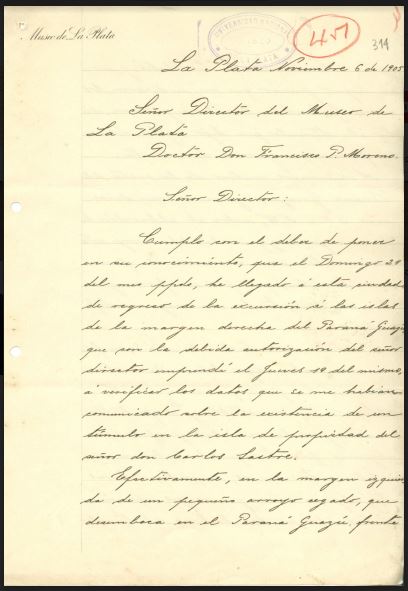 Museo de La Plata
UNIVERSIDAD NACIONAL
451
314
La Plata Noviembre 6 de 1905
Señor Director del Museo de
La Plata
Doctor Don Francisco P. Moreno.
Señor Director:
Cumplo con el deber de poner
en su conocimiento, que el Domingo 29
del mes ppdo, he llegado á esta ciudad
de regreso de la excursión á las islas
de la margen derecha del Paraná Guazú
que con la debida autorización del señor
director emprendí el Jueves 19 del mismo,
á verificar los datos que se me habían
comunicado sobre la existencia de un
túmulo en la isla de propiedad del
señor don Carlos Sastre.
Efectivamente, en la margen izquier
da de un pequeño arroyo cegado, que
desemboca en el Paraná Guazú, frente